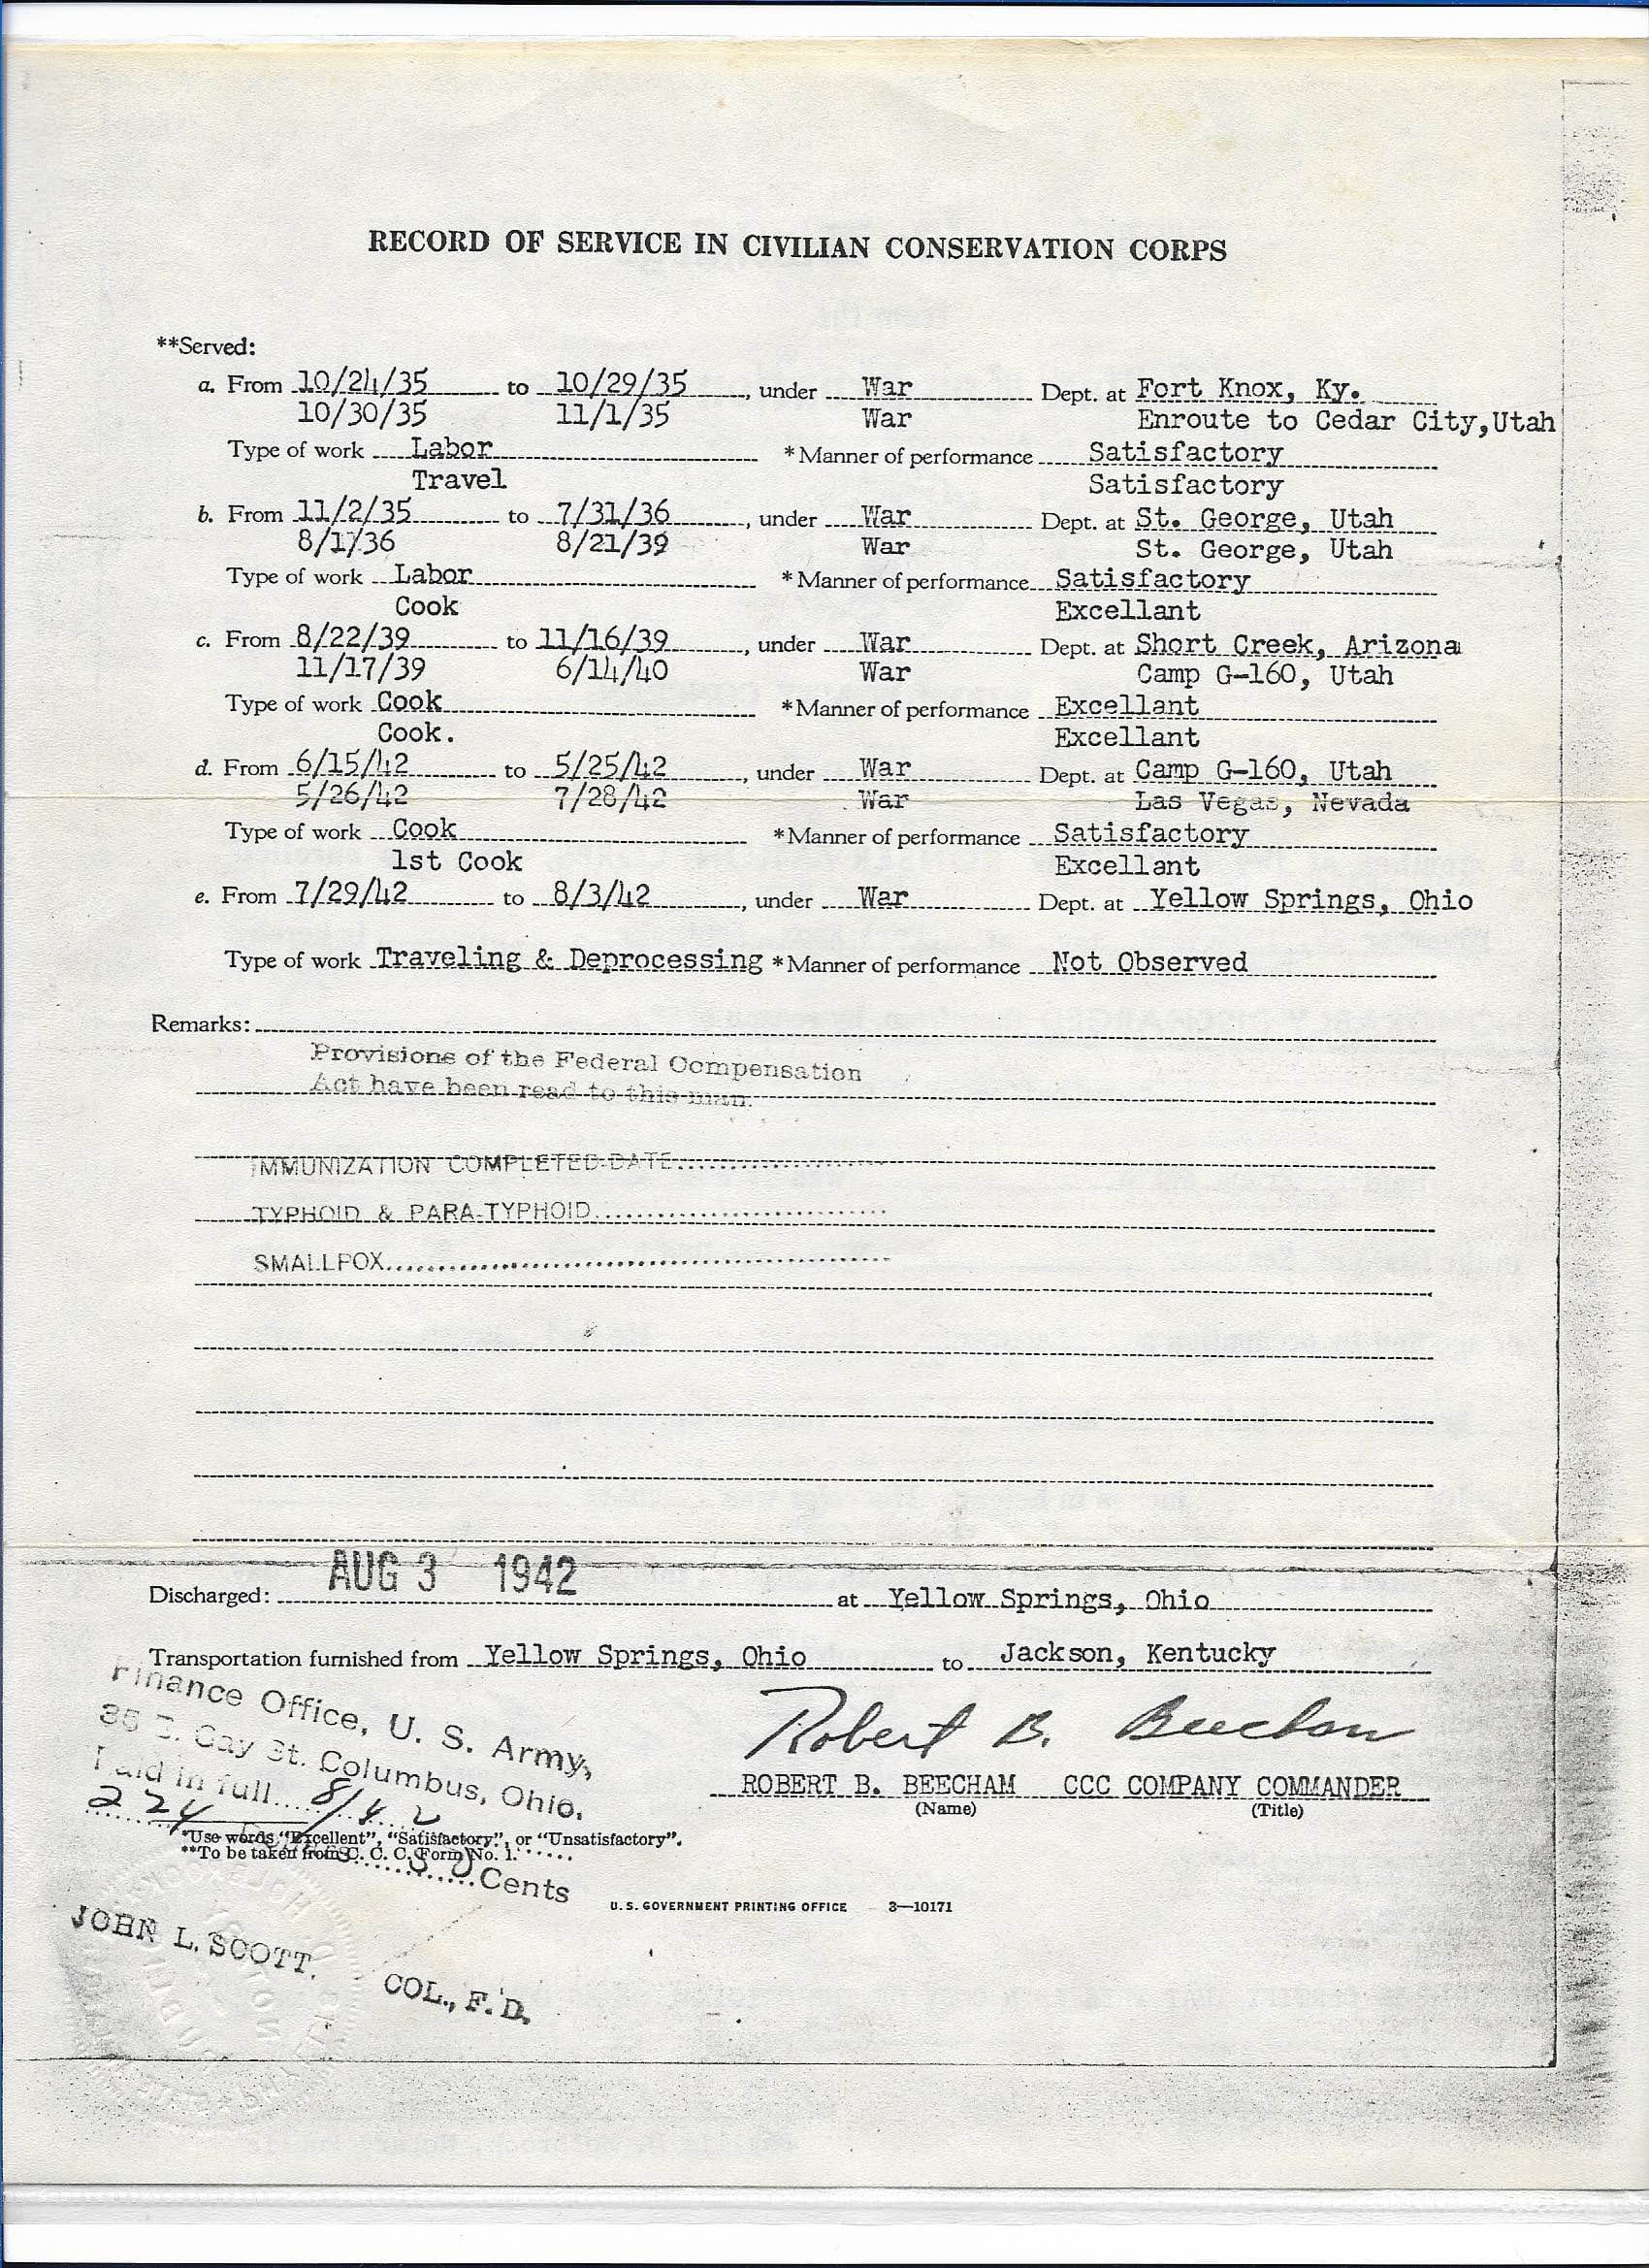 RECORD OF SERVICE IN CIVILIAN CONSERVATION CORPS
**Served:
a. From 10/24/35 to 10/29/35, under War Dept. at Fort Knox, Ky.
10/30/35 11/1/35 War Enroute to Cedar City,Utah
Type of work Labor *Manner of performance Satisfactory
Travel Satisfactory
b. From 11/2/35 to 7/31/36, under War Dept. at St. George, Utah
8/1/36 8/21/39 War St. George, Utah
Type of work Labor *Manner of performance Satisfactory
Cook Excellant
c. From 8/22/39 to 11/16/39, under War Dept. at Short Creek, Arizona
11/17/39 6/14/40 War Camp G-160, Utah
Type of work Cook *Manner of performance Excellant
Cook. Excellant
d. From 6/15/42 to 5/25/42, under War Dept. at Camp G-160, Utah
5/26/42 7/28/42 War Las Vegas, Nevada
Type of work Cook *Manner of performance Satisfactory
1st Cook Excellant
e. From 7/29/42 to 8/3/42, under War Dept. at Yellow Springs, Ohio
Type of work Traveling & Deprocessing *Manner of performance Not Observed
Remarks:
Provisions of the Federal Compensation
Act have been read to this man.
IMMUNIZATION COMPLETED-DATE
TYPHOID & PARA-TYPHOID
SMALLPOX
Discharged: AUG 3 1942 at Yellow Springs, Ohio
Transportation furnished from Yellow Springs, Ohio to Jackson, Kentucky
Finance Office, U. S. Army,
35 E. Gay St. Columbus, Ohio.
Paid in full 8/42
224
Robert B. Beecham
ROBERT B. BEECHAM CCC COMPANY COMMANDER
(Name) (Title)
*Use words "Excellent", "Satisfactory", or "Unsatisfactory".
**To be taken from C. C. C. Form No. 1.
Cents
U. S. GOVERNMENT PRINTING OFFICE 3—10171
JOHN L. SCOTT. COL., F. D.